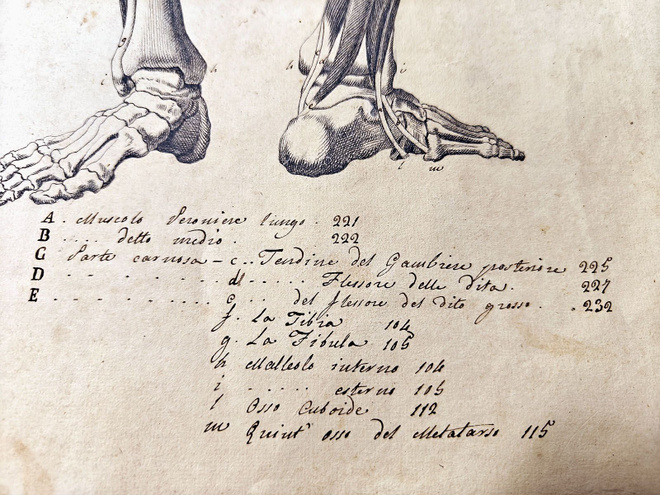 h
i
h
i
l
m
A. Muscolo Peroniere lungo. 221
B ... detto medio. 222
C Parte carnosa - c... Tendine del Gambiere posteriore 225
D - - - - - - - - - d ..... Flessore delle dita. 227
E - - - - - - - - - e ... del flessore del dito grosso. 232
f. La Tibia 104
g. La Fibula 105
h Malleolo interno 104
i ...... esterno 105
l Osso Cuboide 112
m Quint' osso del Metatarso 115